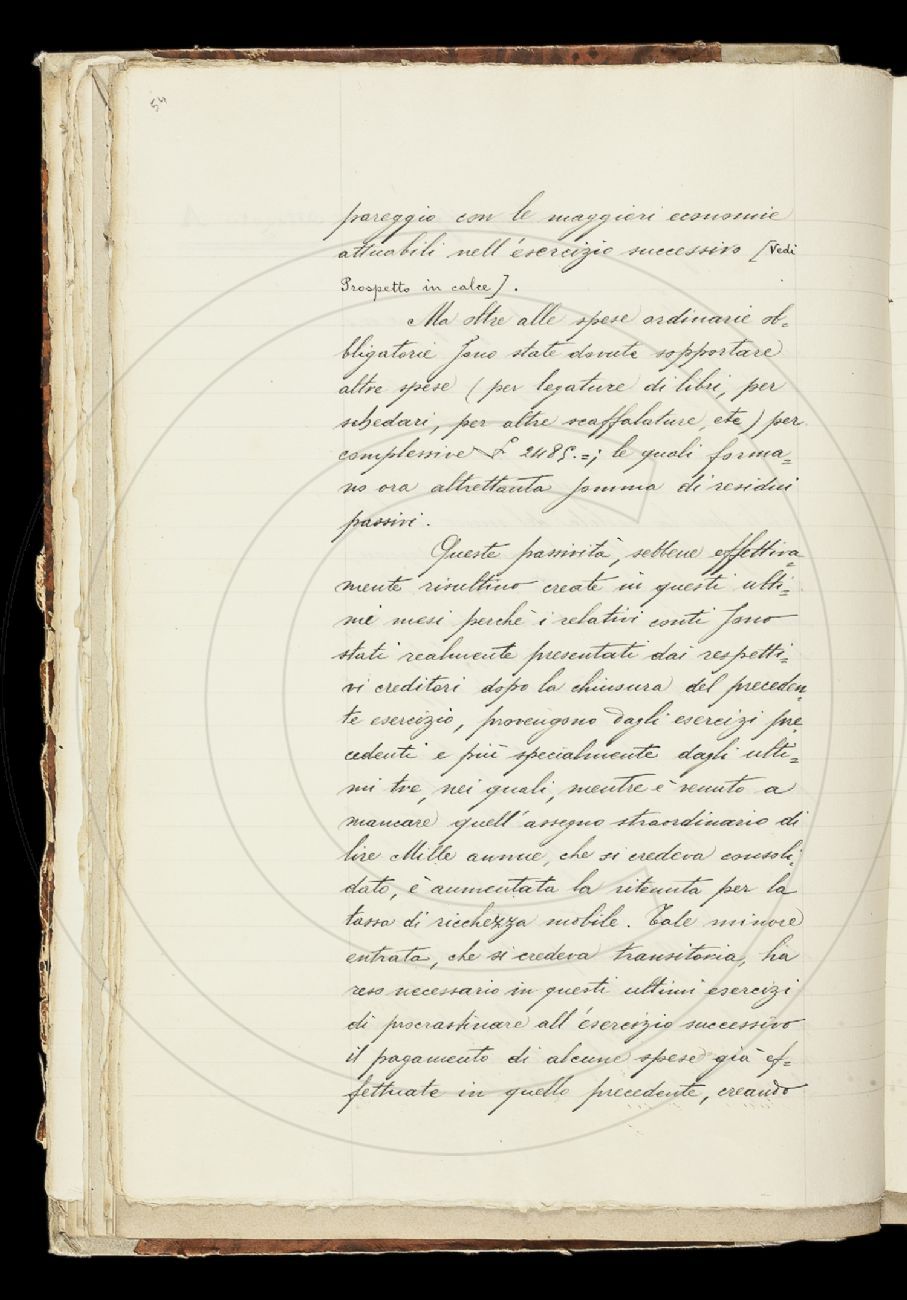 54
pareggio con le maggiori economie
attuabili nell'esercizio successivo [Vedi
Prospetto in calce].
Ma oltre alle spese ordinarie ob=
bligatorie sono state dovute sopportare
altre spese (per legature di libri, per
schedari, per altre scaffalature, etc) per
complessive £ 2485.=; le quali forma=
no ora altrettanta somma di residui
passivi.
Queste passività, sebbene effettiva=
mente risultino create in questi ulti=
mi mesi perchè i relativi conti sono
stati realmente presentati dai rispetti=
vi creditori dopo la chiusura del preceden=
te esercizio, provengono dagli esercizi pre
cedenti e più specialmente dagli ulti=
mi tre, nei quali, mentre è venuto a
mancare quell'assegno straordinario di
lire Mille annue, che si credeva consoli=
dato, è aumentata la ritenuta per la
tassa di ricchezza mobile. Tale minore
entrata, che si credeva transitoria, ha
reso necessario in questi ultimi esercizi
di procrastinare all'esercizio successivo
il pagamento di alcune spese già ef=
fettuate in quello precedente, creando